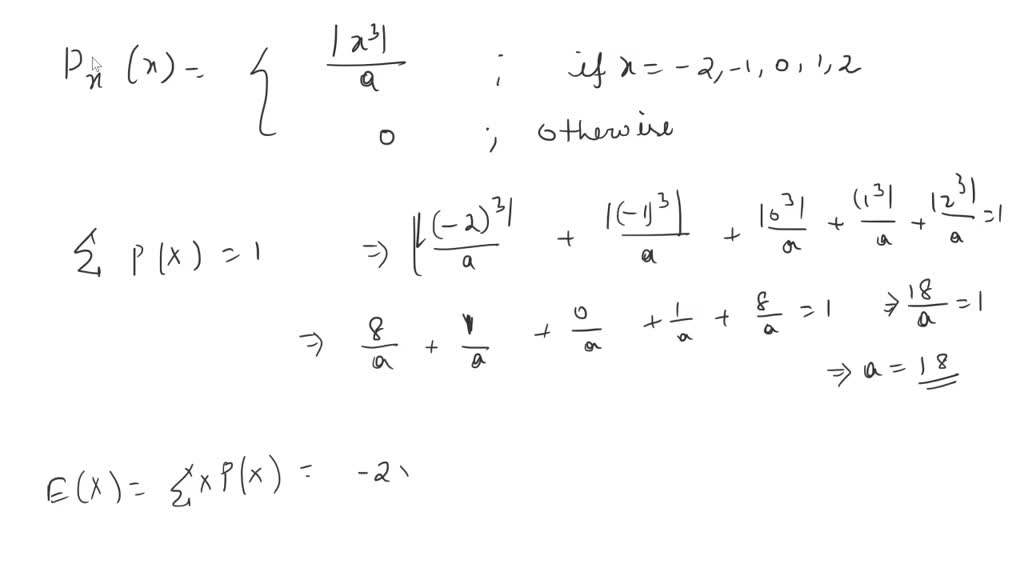 Pₓ(x) = { |x³|/a ; if x = -2, -1, 0, 1, 2
0 ; otherwise
Σ P(X) = 1 ⇒ |(-2)³|/a + |(-1)³|/a + |0³|/a + |1³|/a + |2³|/a = 1
⇒ 8/a + 1/a + 0/a + 1/a + 8/a = 1 ⇒ 18/a = 1
⇒ a = 18
E(X) = Σ x P(X) = -2